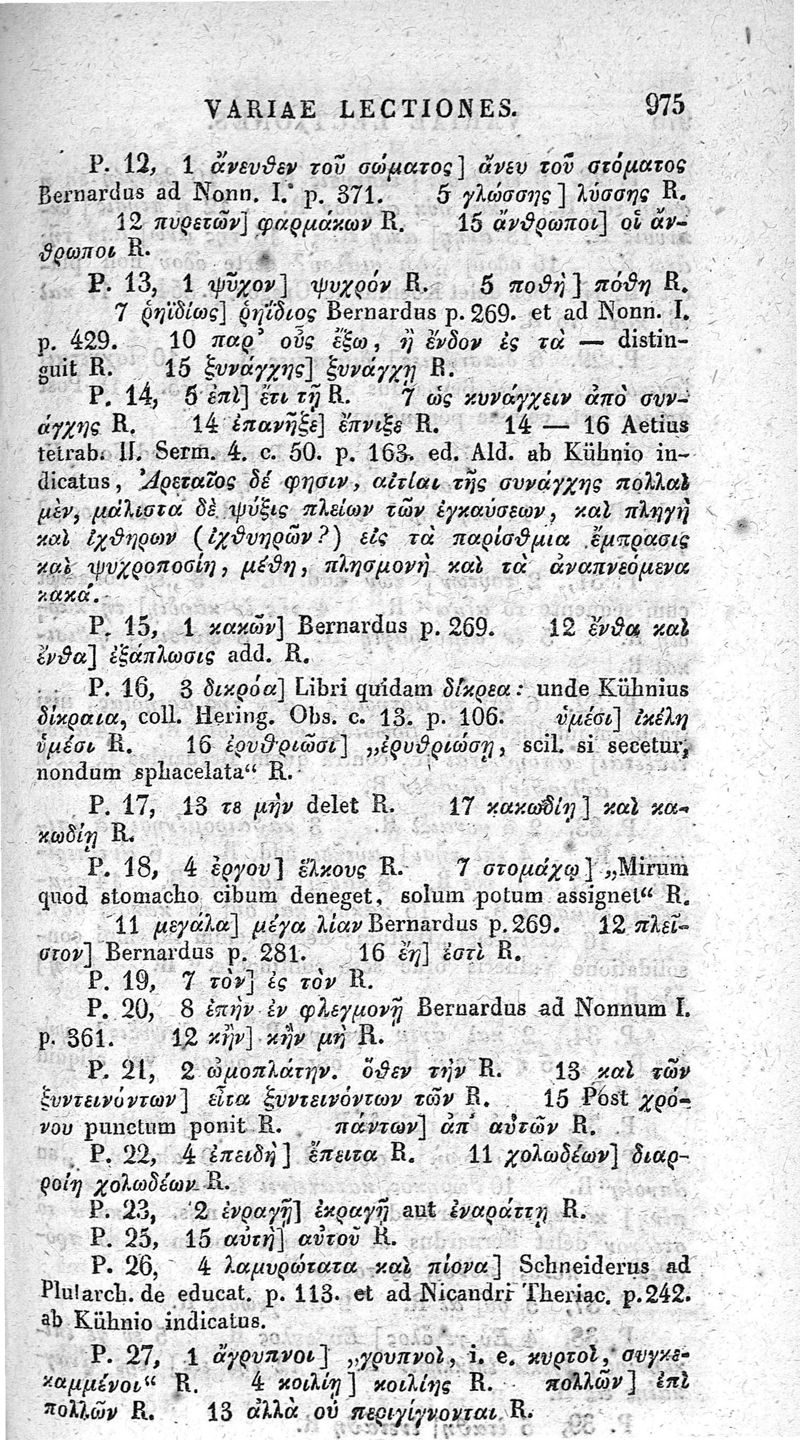 VARIAE LECTIONES. 975
P. 12, 1 ἄνευθεν τοῦ σώματος] ἄνευ τοῦ στόματος
Bernardus ad Nonn. I. p. 371. 5 γλώσσης] λύσσης R.
12 πυρετῶν] φαρμάκων R. 15 ἄνθρωποι] οἱ ἄν-
θρωποι R.
P. 13, 1 ψῦχον] ψυχρόν R. 5 ποθὴ] πόθη R.
7 ῥηϊδίως] ῥηΐδιος Bernardus p. 269. et ad Nonn. I.
p. 429. 10 παρ᾽ οὓς ἔξω, ἢ ἔνδον ἐς τὰ — distin-
guit R. 15 ξυνάγχης] ξυνάγχῃ R.
P. 14, 5 ἐπὶ] ἔτι τῇ R. 7 ὡς κυνάγχειν ἀπὸ συν-
άγχης R. 14 ἐπανῆξε] ἔπνιξε R. 14 — 16 Aetius
tetrab. II. Serm. 4. c. 50. p. 163. ed. Ald. ab Kühnio in-
dicatus, Ἀρεταῖος δέ φησιν, αἰτίαι τῆς συνάγχης πολλαὶ
μὲν, μάλιστα δὲ ψύξις πλείων τῶν ἐγκαύσεων, καὶ πληγὴ
καὶ ἰχθηρων (ἰχθυηρῶν?) εἰς τὰ παρίσθμια ἔμπρασις
καὶ ψυχροποσίη, μέθη, πλησμονὴ καὶ τὰ ἀναπνεόμενα
κακά.
P. 15, 1 κακῶν] Bernardus p. 269. 12 ἔνθα καὶ
ἔνθα] ἐξάπλωσις add. R.
P. 16, 3 δικρόα] Libri quidam δίκρεα: unde Kühnius
δίκραια, coll. Hering. Obs. c. 13. p. 106. ὑμέσι] ἰκέλη
ὑμέσι R. 16 ἐρυθριῶσι] „ἐρυθριώσῃ, scil. si secetur,
nondum sphacelata“ R.
P. 17, 13 τε μὴν delet R. 17 κακωδίη] καὶ κα-
κωδίη R.
P. 18, 4 ἔργου] ἕλκους R. 7 στομάχῳ] „Mirum
quod stomacho cibum deneget, solum potum assignet“ R.
11 μεγάλα] μέγα λίαν Bernardus p. 269. 12 πλεῖ-
στον] Bernardus p. 281. 16 ἔῃ] ἐστὶ R.
P. 19, 7 τὸν] ἐς τὸν R.
P. 20, 8 ἐπὴν ἐν φλεγμονῇ Bernardus ad Nonnum I.
p. 361. 12 κἢν] κἢν μὴ R.
P. 21, 2 ὠμοπλάτην. ὅθεν τὴν R. 13 καὶ τῶν
ξυντεινόντων] εἶτα ξυντεινόντων τῶν R. 15 Post χρό-
νου punctum ponit R. πάντων] ἀπ᾽ αὐτῶν R.
P. 22, 4 ἐπειδὴ] ἔπειτα R. 11 χολωδέων] διαρ-
ροίη χολωδέων R.
P. 23, 2 ἐνραγῇ] ἐκραγῇ aut ἐναράττῃ R.
P. 25, 15 αὐτὴ] αὐτοῦ R.
P. 26, 4 λαμυρώτατα καὶ πίονα] Schneiderus ad
Plutarch. de educat. p. 113. et ad Nicandri Theriac. p. 242.
ab Kühnio indicatus.
P. 27, 1 ἄγρυπνοι] „γρυπνοὶ, i. e. κυρτοὶ, συγκε-
καμμένοι“ R. 4 κοιλίη] κοιλίης R. πολλῶν] ἐπὶ
πολλῶν R. 13 ἀλλὰ οὐ περιγίγνονται R.